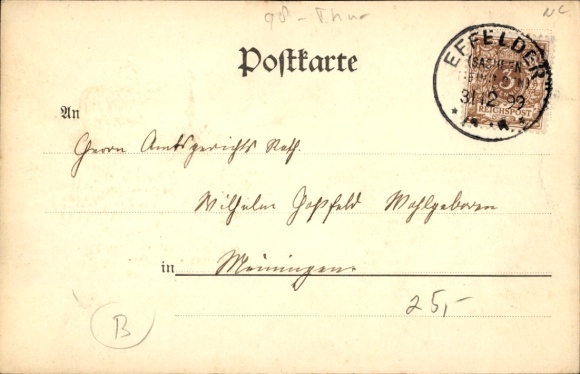 98 - Thür
NC
Postkarte
EFFELDER
(SACHSEN
3
31 12 99
REICHSPOST
An
Herrn Amtsgerichts Rath.
Wilhelm Hoßfeld Wohlgeboren
in Meiningen.
25,-
B